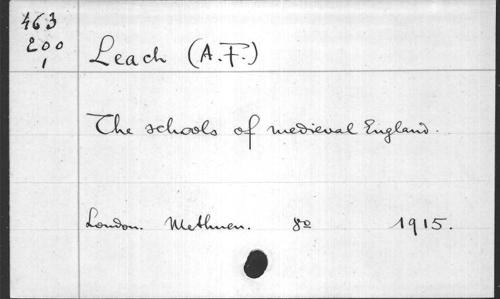 463
200
1
Leach (A.F.)
The schools of medieval England.
London. Methuen. 8º 1915.